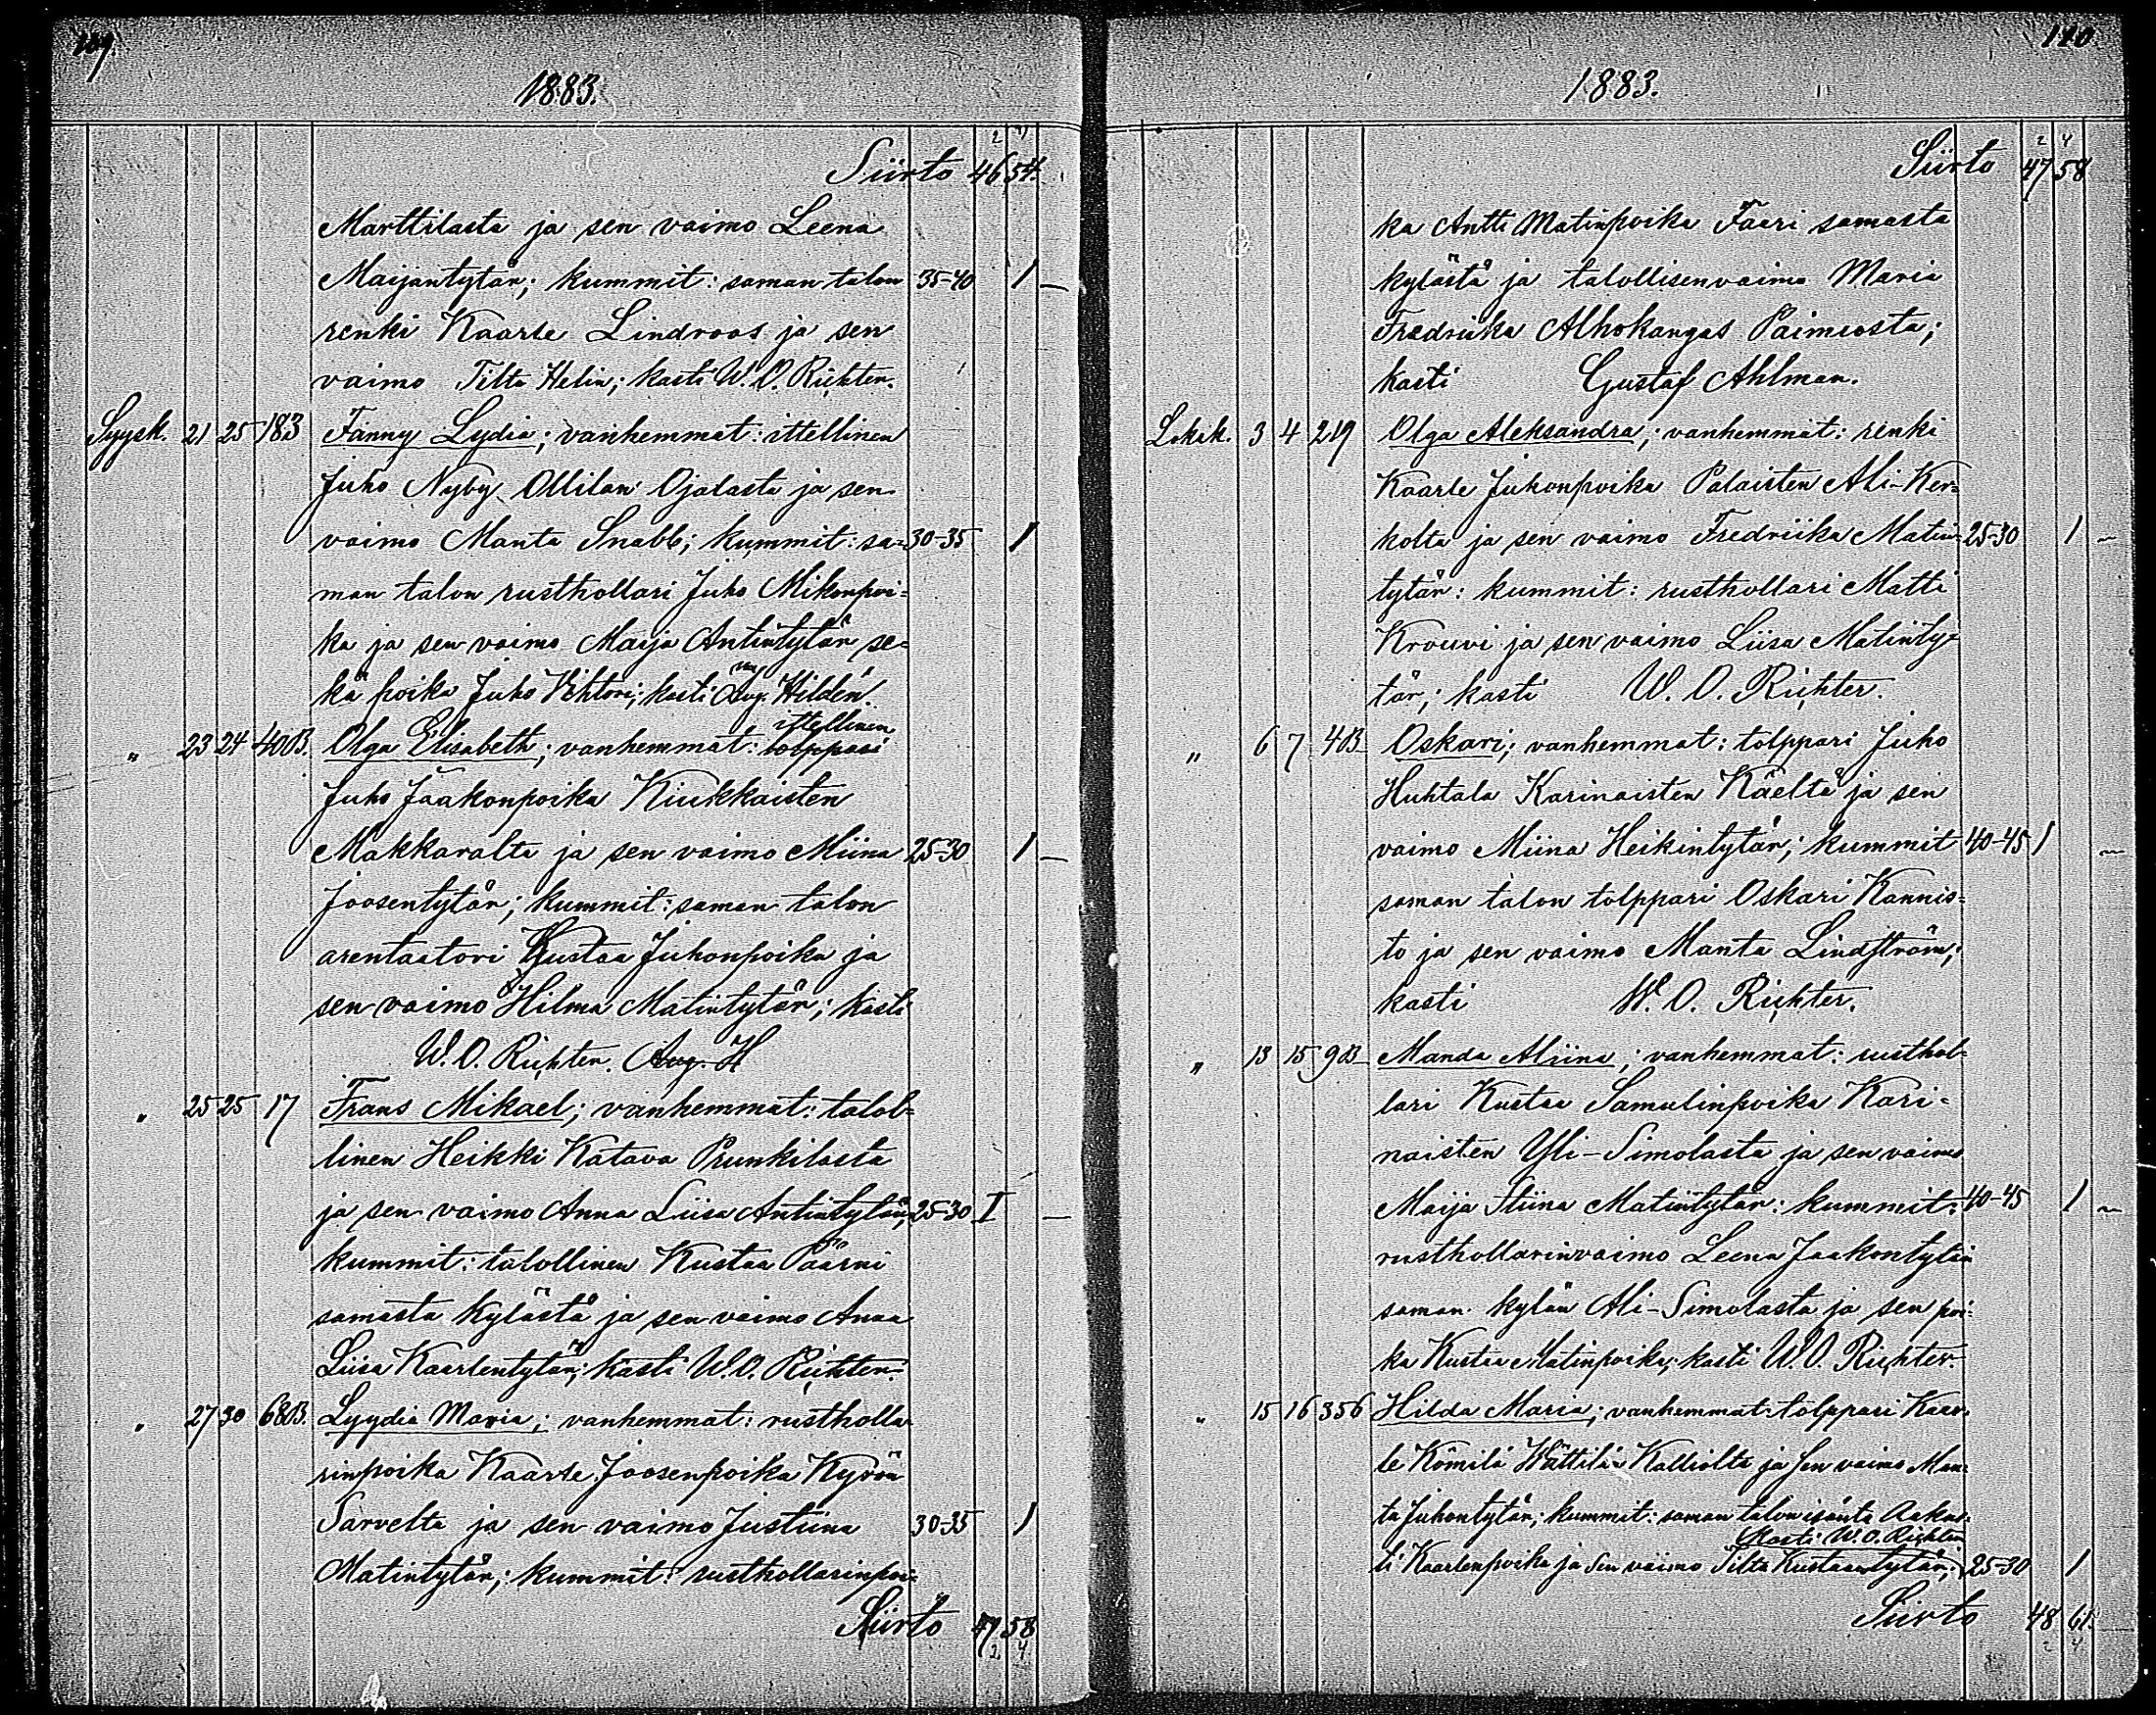 109.
1883.
2 4
Siirto 46 54.
Marttilasta ja sen vaimo Leena
Maijantytär; kummit: saman talon 35-40 1 –
renki Kaarle Lindroos ja sen
vaimo Tilta Helin; kasti W. O. Richter.
Syysk. 21 25 183 Fanny Lydia; vanhemmat: ittellinen
Juho Nyby Ollilan Ojalasta ja sen
vaimo Manta Snabb; kummit: sa= 30-35 1
man talon rusthollari Juho Mikonpoi=
ka ja sen vaimo Maija Antintytär se=
kä poika Juho Vihtori; kasti Aug. Hildén.
ittellinen
" 23 24 40B. Olga Elisabeth; vanhemmat: tolppari
Juho Jaakonpoika Kiukkaisten
Makkaralta ja sen vaimo Miina 25-30 1 –
Joosentytär; kummit: saman talon
arentaatori Kustaa Juhonpoika ja
sen vaimo Hilma Matintytär; kasti
W. O. Richter. Aug. H
" 25 25 17 Frans Mikael; vanhemmat: talol=
linen Heikki Katava Prunkilasta
ja sen vaimo Anna Liisa Antintytär; 25-30 I –
kummit: talollinen Kustaa Päärni
samasta kylästä ja sen vaimo Anna
Liisa Kaarlentytär; kasti W. O. Richter.
" 27 30 68B. Lyydia Maria; vanhemmat: rustholla=
rinpoika Kaarle Joosenpoika Kyrön
Sarvelta ja sen vaimo Justiina 30-35 1
Matintytär; kummit: rusthollarinpoi=
Siirto 47 58
2 4
110.
1883.
2 4
Siirto 47 58
ka Antti Matinpoika Faari samasta
kylästä ja talollisenvaimo Maria
Fredriika Alhokangas Paimiosta;
kasti Gustaf Ahlman.
Lokak. 3 4 219 Olga Aleksandra; vanhemmat: renki
Kaarle Juhonpoika Palaisten Ali-Ker=
kolta ja sen vaimo Fredriika Matin= 25-30 1 ~
tytär: kummit: rusthollari Matti
Krouvi ja sen vaimo Liisa Matinty=
tär; kasti W. O. Richter.
" 6 7 40B Oskari; vanhemmat: tolppari Juho
Huhtala Karinaisten Käeltä ja sen
vaimo Miina Heikintytär; kummit 40-45 1 ~
saman talon tolppari Oskari Kannis=
to ja sen vaimo Manta Lindström;
kasti W. O. Richter.
" 13 15 90B Manda Aliina; vanhemmat: rusthol=
lari Kustaa Samulinpoika Kari=
naisten Yli-Simolasta ja sen vaimo
Maija Stiina Matintytär: kummit: 40-45 1 ~
rusthollarinvaimo Leena Jaakontytär
saman kylän Ali-Simolasta ja sen poi=
ka Kustaa Matinpoika; kasti W. O. Richter.
" 15 16 356 Hilda Maria; vanhemmat: tolppari Kaar=
le Kömilä Wättilän Kalliolta ja sen vaimo Man=
ta Juhontytär; kummit: saman talon isäntä Aakus=
Kasti W. O. Richter
ti Kaarlenpoika ja sen vaimo Tilta Kustaantytär; 25-30 1
Siirto 48 61.
2 4